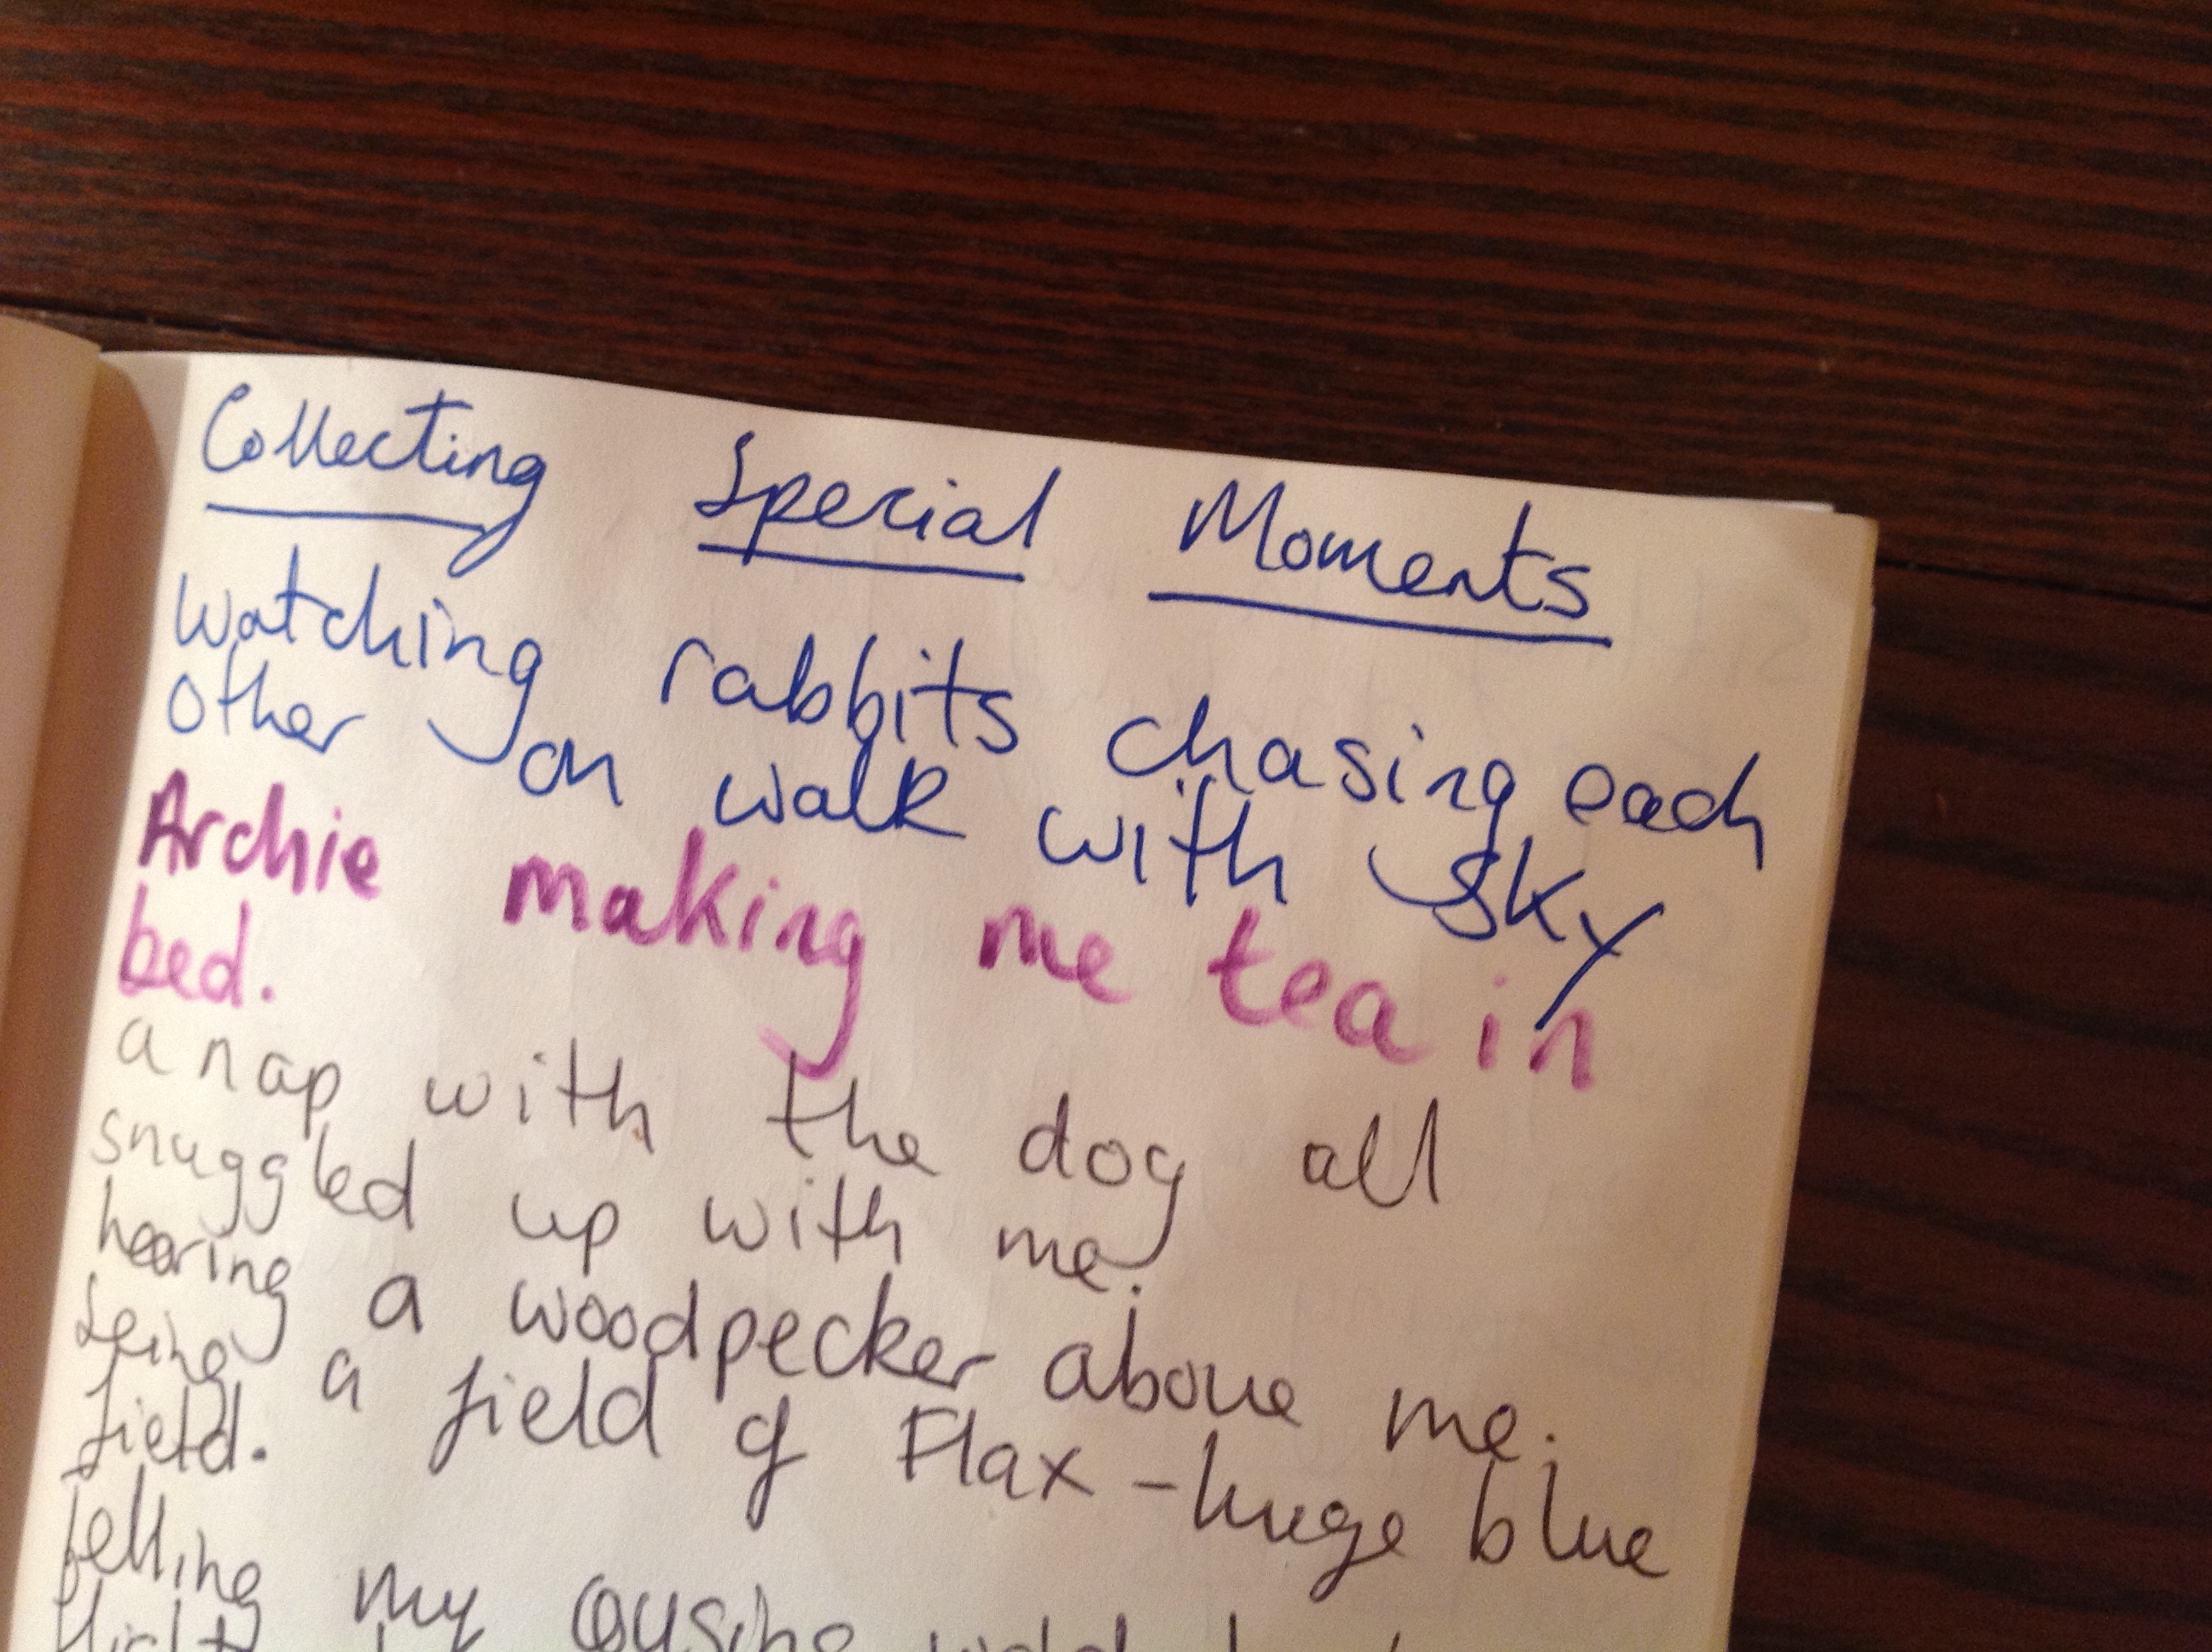 Collecting Special Moments
Watching rabbits chasing each
other on walk with Sky
Archie making me tea in
bed.
a nap with the dog all
snuggled up with me.
hearing a woodpecker above me.
Seing a field of Flax - huge blue
field.
telling my cousins